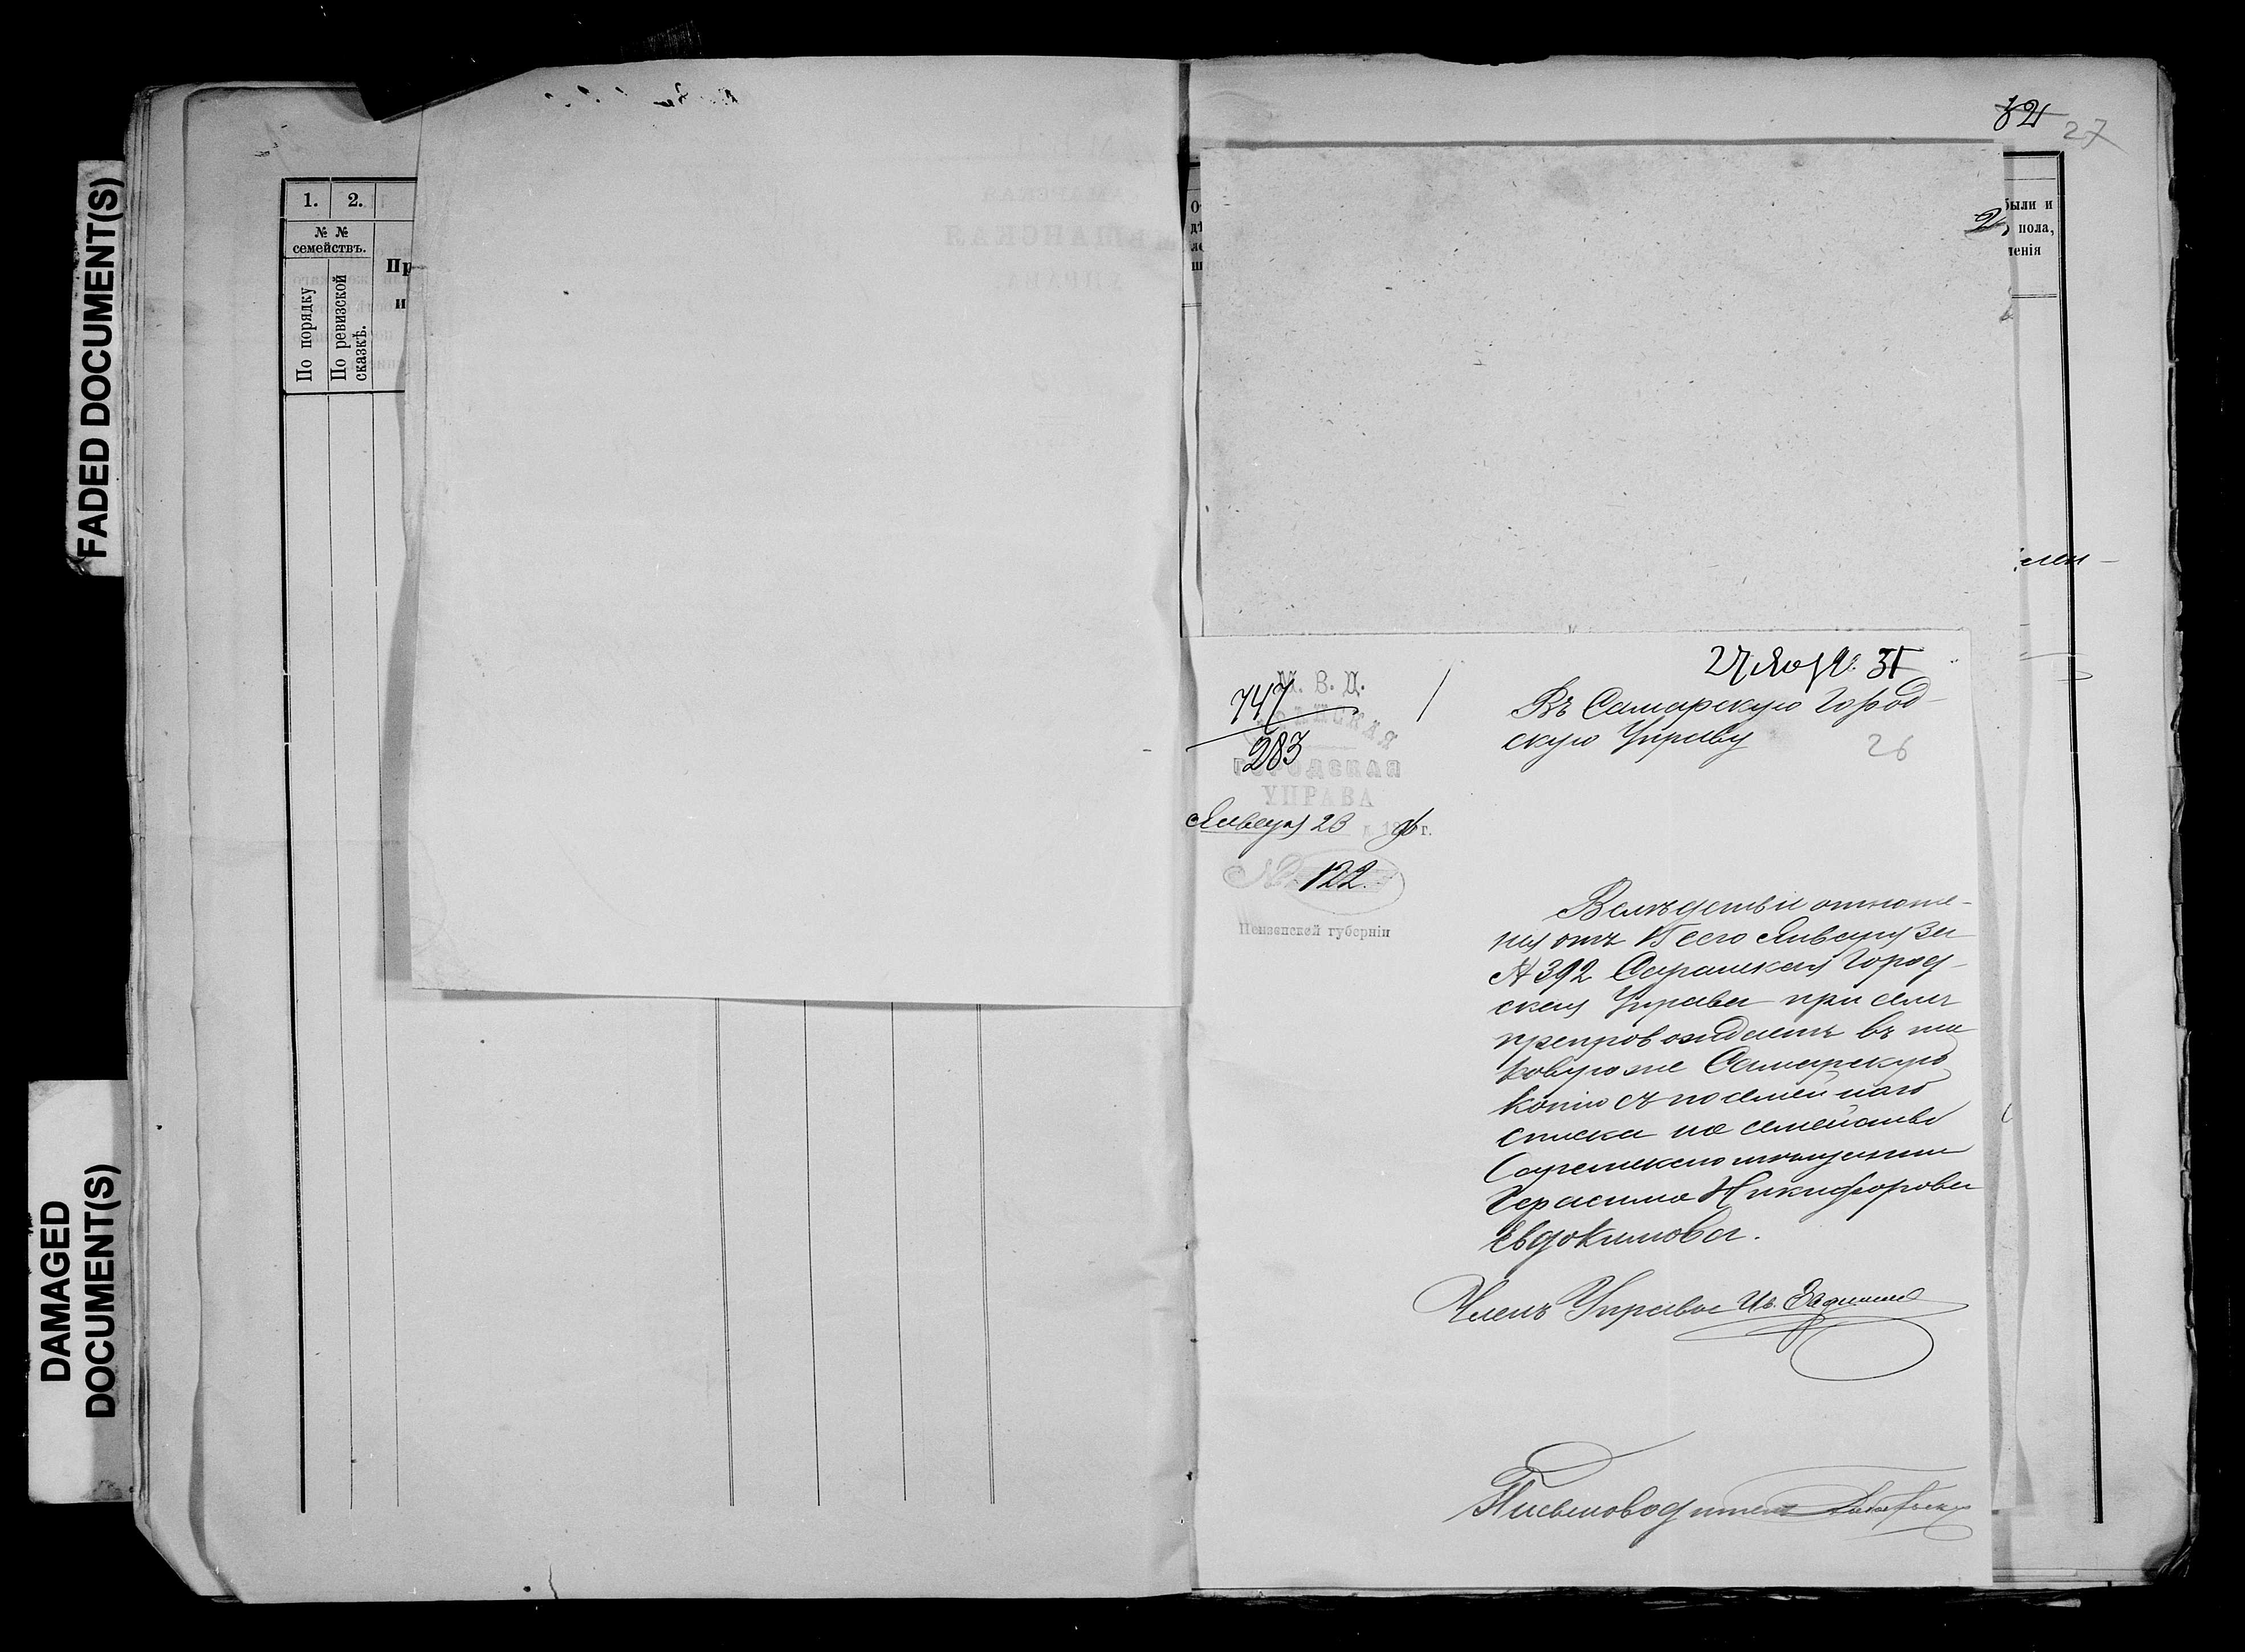 FADED DOCUMENT(S)
DAMAGED
DOCUMENT(S)
1. 2.
№ №
семействъ.
По порядку
По ревизской
сказкѣ.
Пр
и
32
27
были и
пола,
ченія
27 Янв
31
М. В. Д.
747
283
ГОРОДСКАЯ
УПРАВА
Января 23
г.
№ 122.
Пензенской губерніи
Въ Самарскую Город-
скую Управу
26
Вслѣдствіи отноше-
нія отъ 15 сего Января за
№ 392 Саранская Город-
ская Управа при семъ
препровождаетъ въ та-
ковую же Самарскую
копію съ посемейнаго
списка на семейство
Саранскаго мѣщанина
Герасима Никифорова
Евдокимова.
Членъ Управы Ив.
Письмоводитель